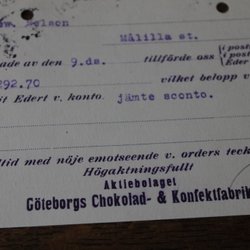 Nelson
Målilla st.
ade av den 9.ds. tillförde oss i post i post Eder
292.70 vilket belopp v
it Edert v. konto. jämte sconto.
ltid med nöje emotseende v. orders teck
Högaktningsfullt
Aktiebolaget
Göteborgs Chokolad- & Konfektfabrik